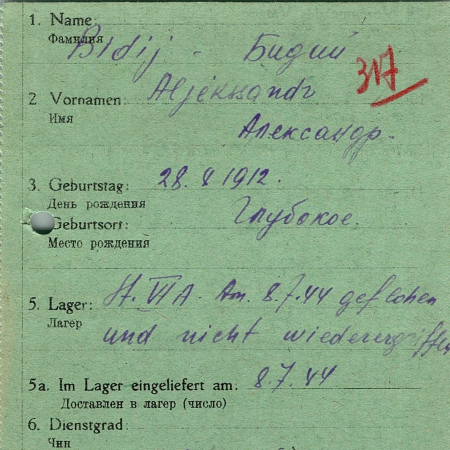 1. Name Bidij - Бидий
Фамилия
317
2 Vornamen: Aljeksandr
Имя
Александр.
3. Geburtstag: 28. 1912.
День рождения
Geburtsort: Глубокое.
Место рождения
5. Lager: St. VI A. Am. 8.7.44 geflohen
Лагер
und nicht wiederergriffen
5a. Im Lager eingeliefert am: 8.7.44
Доставлен в лагер (число)
6. Dienstgrad:
Чин